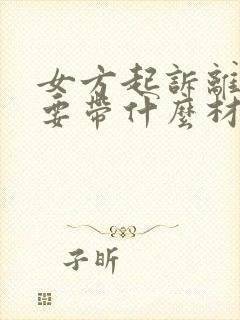 女方起訴離
要帶什麼材
子昕